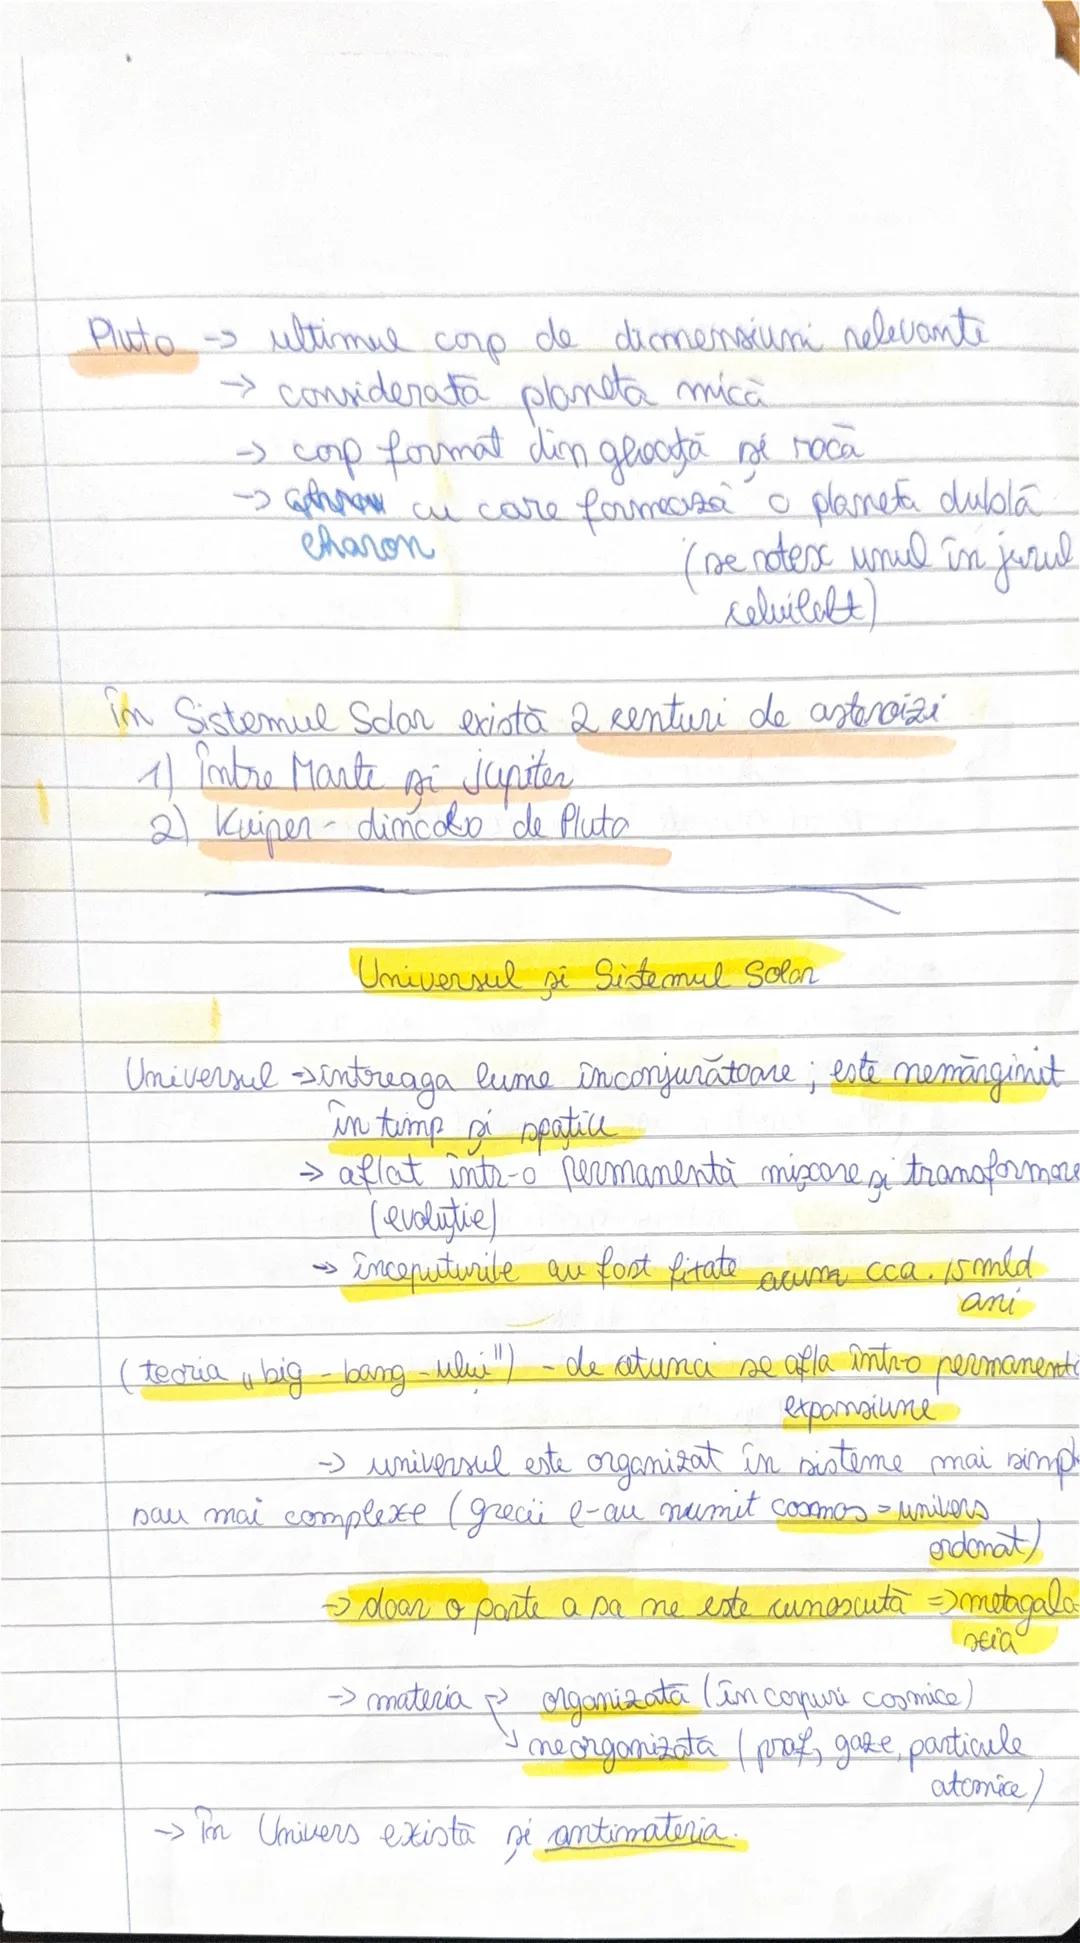 Pluto -> ultimul corp de dimensiuni relevante
-> considerată planeta mică
-> corp format din gheață și rocă
-> cu care formează o planetă dublă
charon
(se rotesc unul în jurul
celuilalt)
în Sistemul Solar există 2 centuri de asteroizi
1) între Marte și jupiter
2) Kuiper - dincolo de Pluto
Universul și Sistemul Solar
Universul -> întreaga lume înconjurătoare ; este nemărginit
în timp și spațiu
-> aflat într-o permanentă mișcare și transformare
(evoluție)
-> începuturile au fost fixate acum cca. 15 mld
ani
(teoria „big - bang - ului") - de atunci se afla într-o permanentă
expansiune
-> universul este organizat în sisteme mai simple
sau mai complexe (grecii l-au numit cosmos = univers
ordonat)
-> doar o parte a sa ne este cunoscută => metagala-
xia
-> materia -> organizată (în corpuri cosmice)
-> neorganizată (praf, gaze, particule
atomice)
-> în Univers există și antimateria.